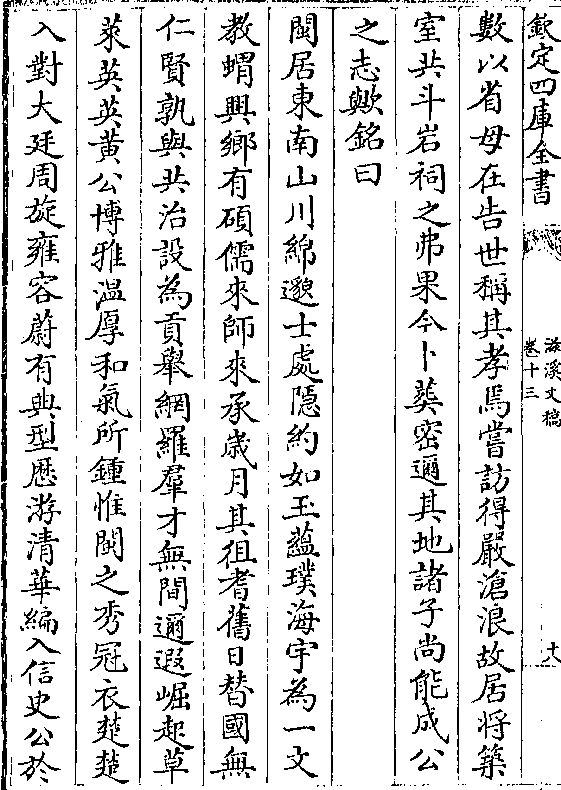 欽定四庫全書
海溪文稿
卷十三
十八
數以省母在告世稱其孝焉嘗訪得嚴滄浪故居将築
室共斗岩祠之弗果今卜葬密邇其地諸子尚能成公
之志歟銘曰
閩居東南山川綿邈士處隱約如玉藴璞海宇為一文
教蝟興鄉有碩儒來師來承歳月其徂耆舊日替國無
仁賢孰與共治設為貢舉網羅羣才無間邇遐崛起草
萊英英黃公博雅溫厚和氣所鍾惟閩之秀冠衣楚楚
入對大廷周旋雍容蔚有典型歴游清華編入信史公於